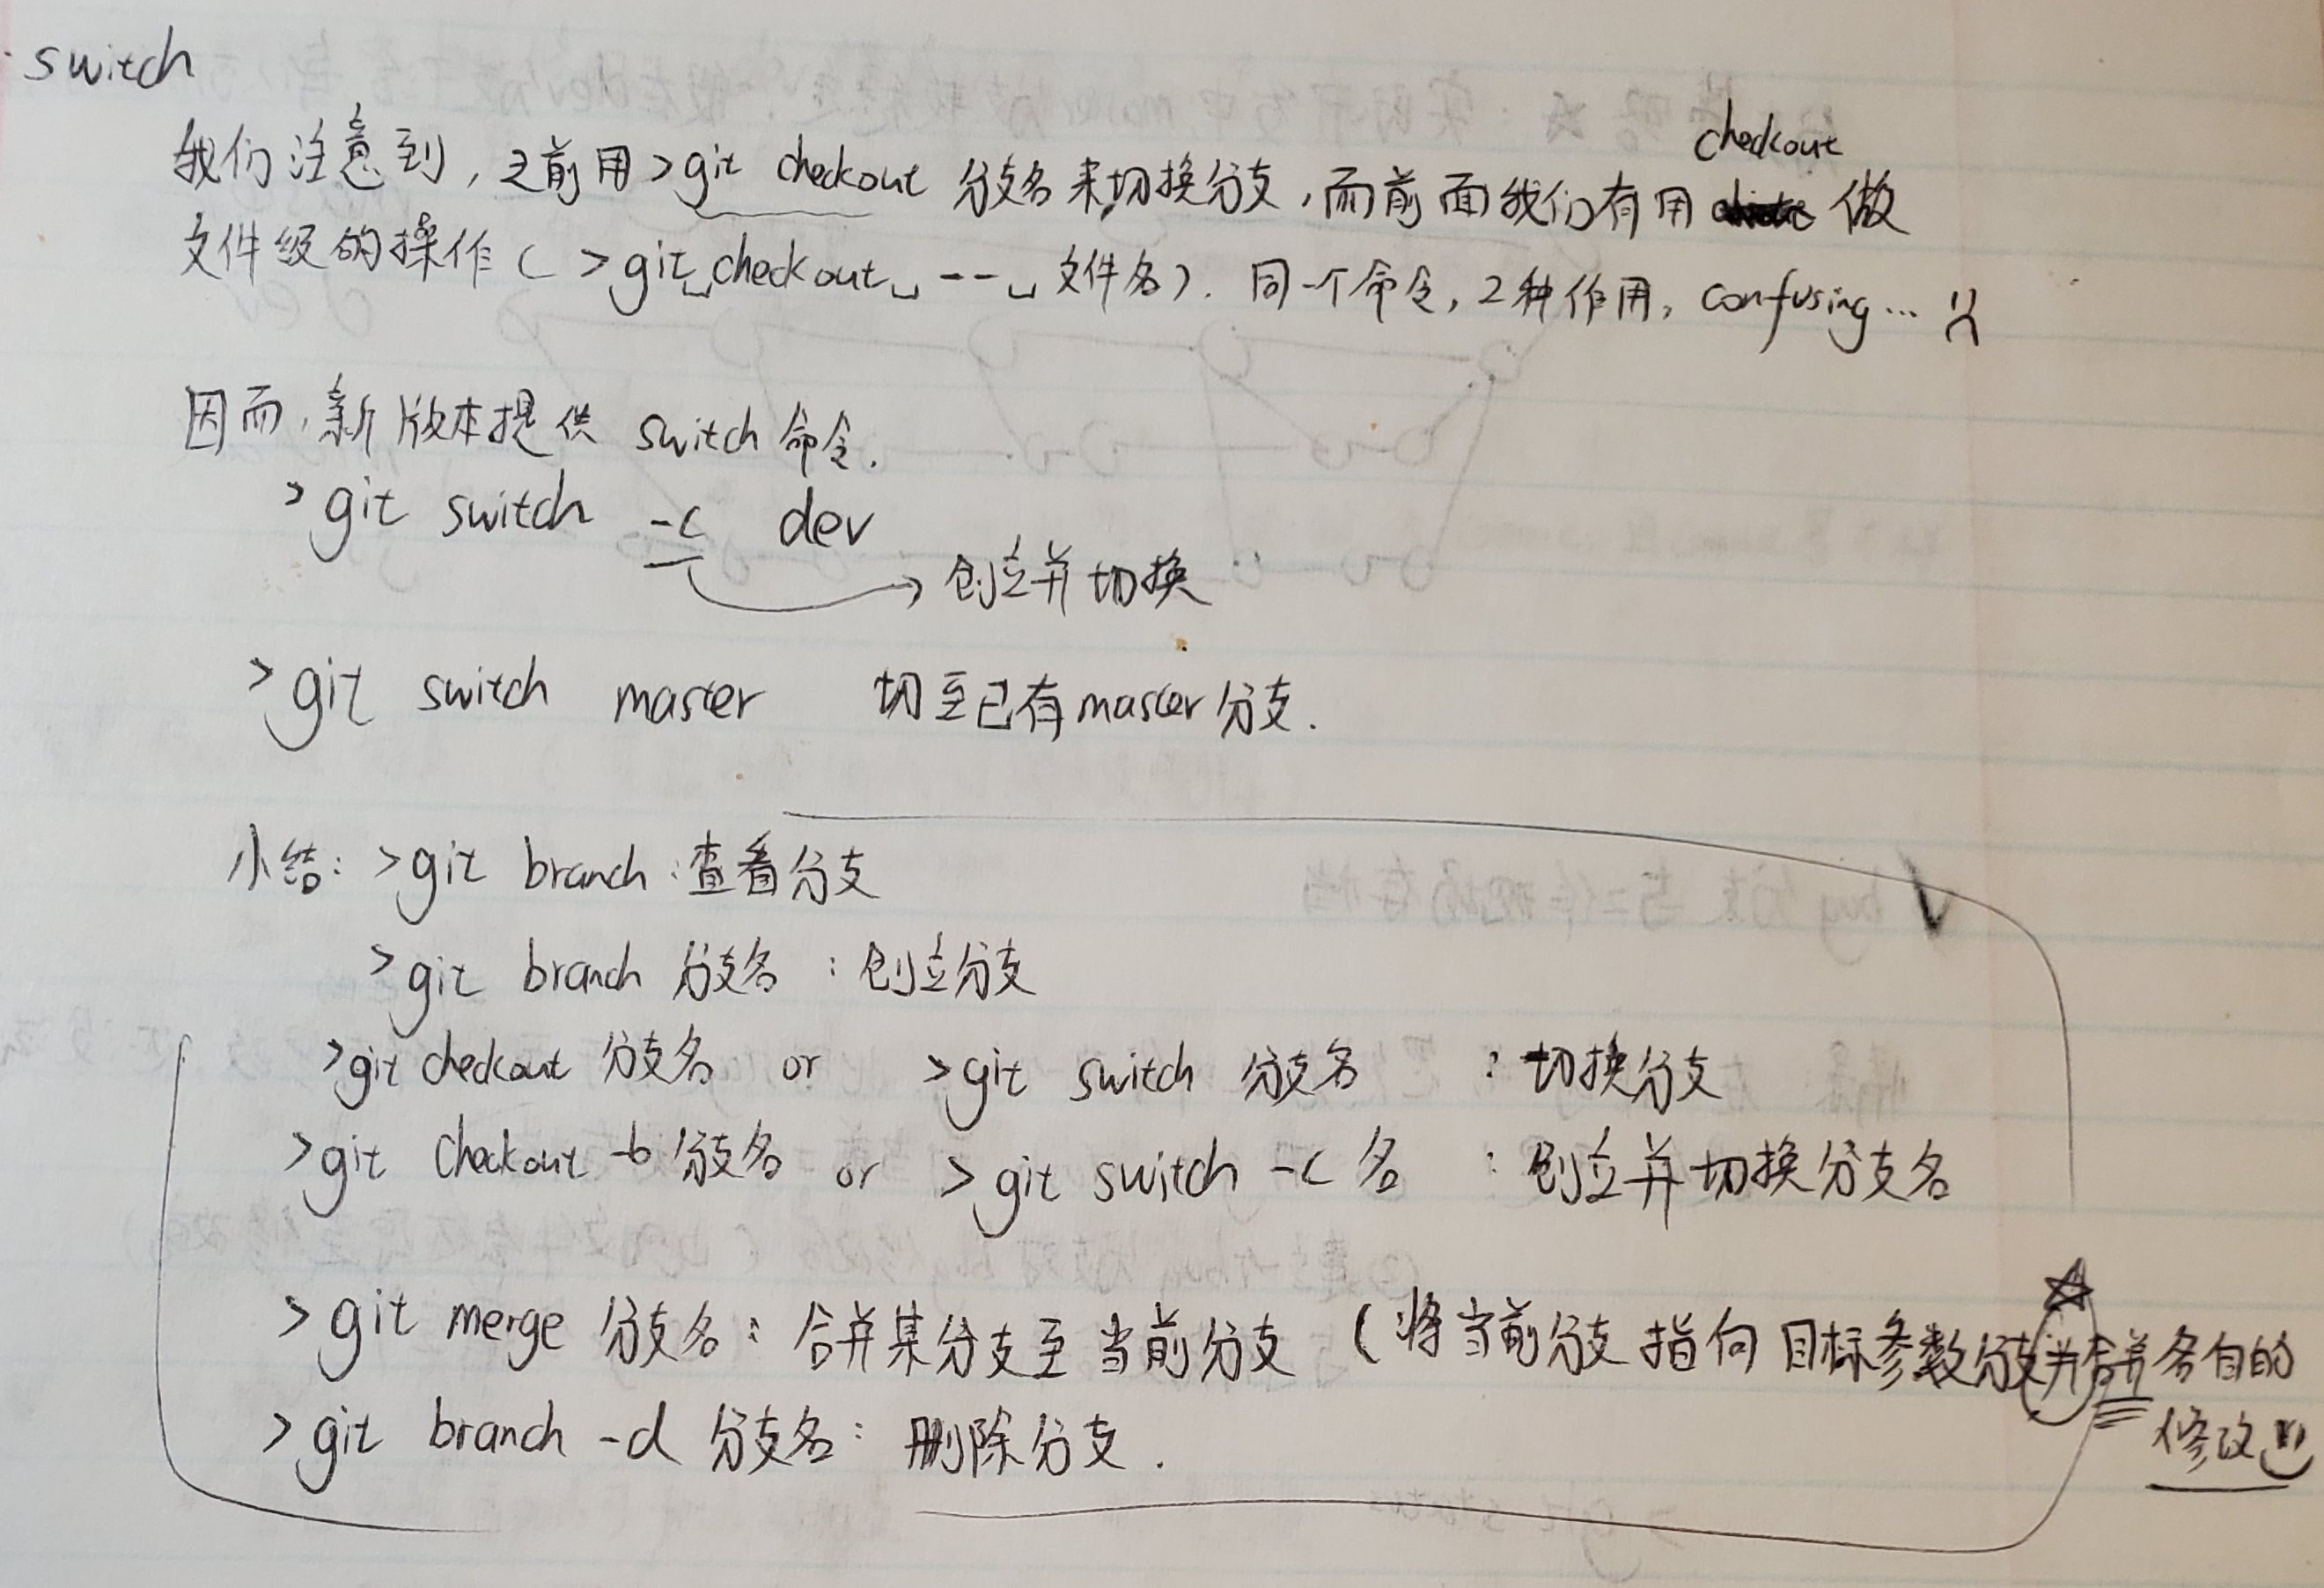 switch
我们注意到，之前用>git checkout 分支名来切换分支，而前面我们有用 checkout 做
文件级的操作( >git␣checkout␣--␣文件名). 同一个命令, 2种作用, confusing...
因而,新版本提供 switch 命令.
>git switch -c dev
→ 创立并切换
>git switch master 切至已有master分支.
小结: >git branch :查看分支
>git branch 分支名 : 创立分支
>git checkout 分支名 or >git switch 分支名 : 切换分支
>git checkout -b 分支名 or >git switch -c 名 : 创立并切换分支名
>git merge 分支名: 合并某分支至当前分支 (将当前分支指向目标参数分支并合并各自的
修改
>git branch -d 分支名: 删除分支.